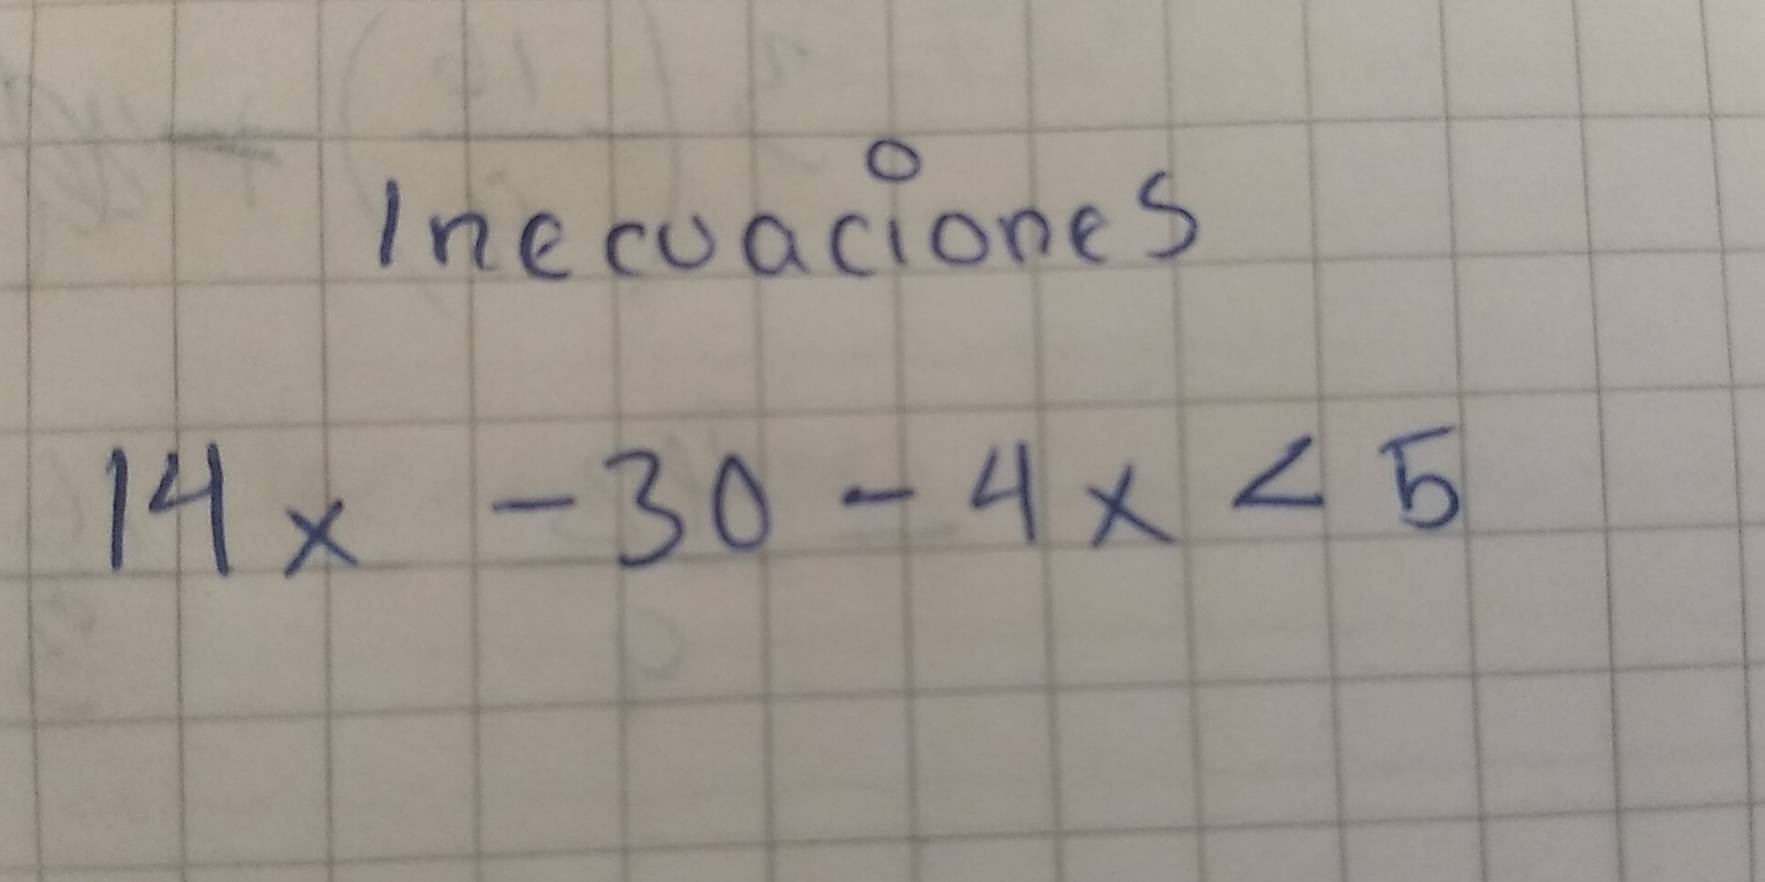 Inecuaciones
14x - 30 - 4x < 5